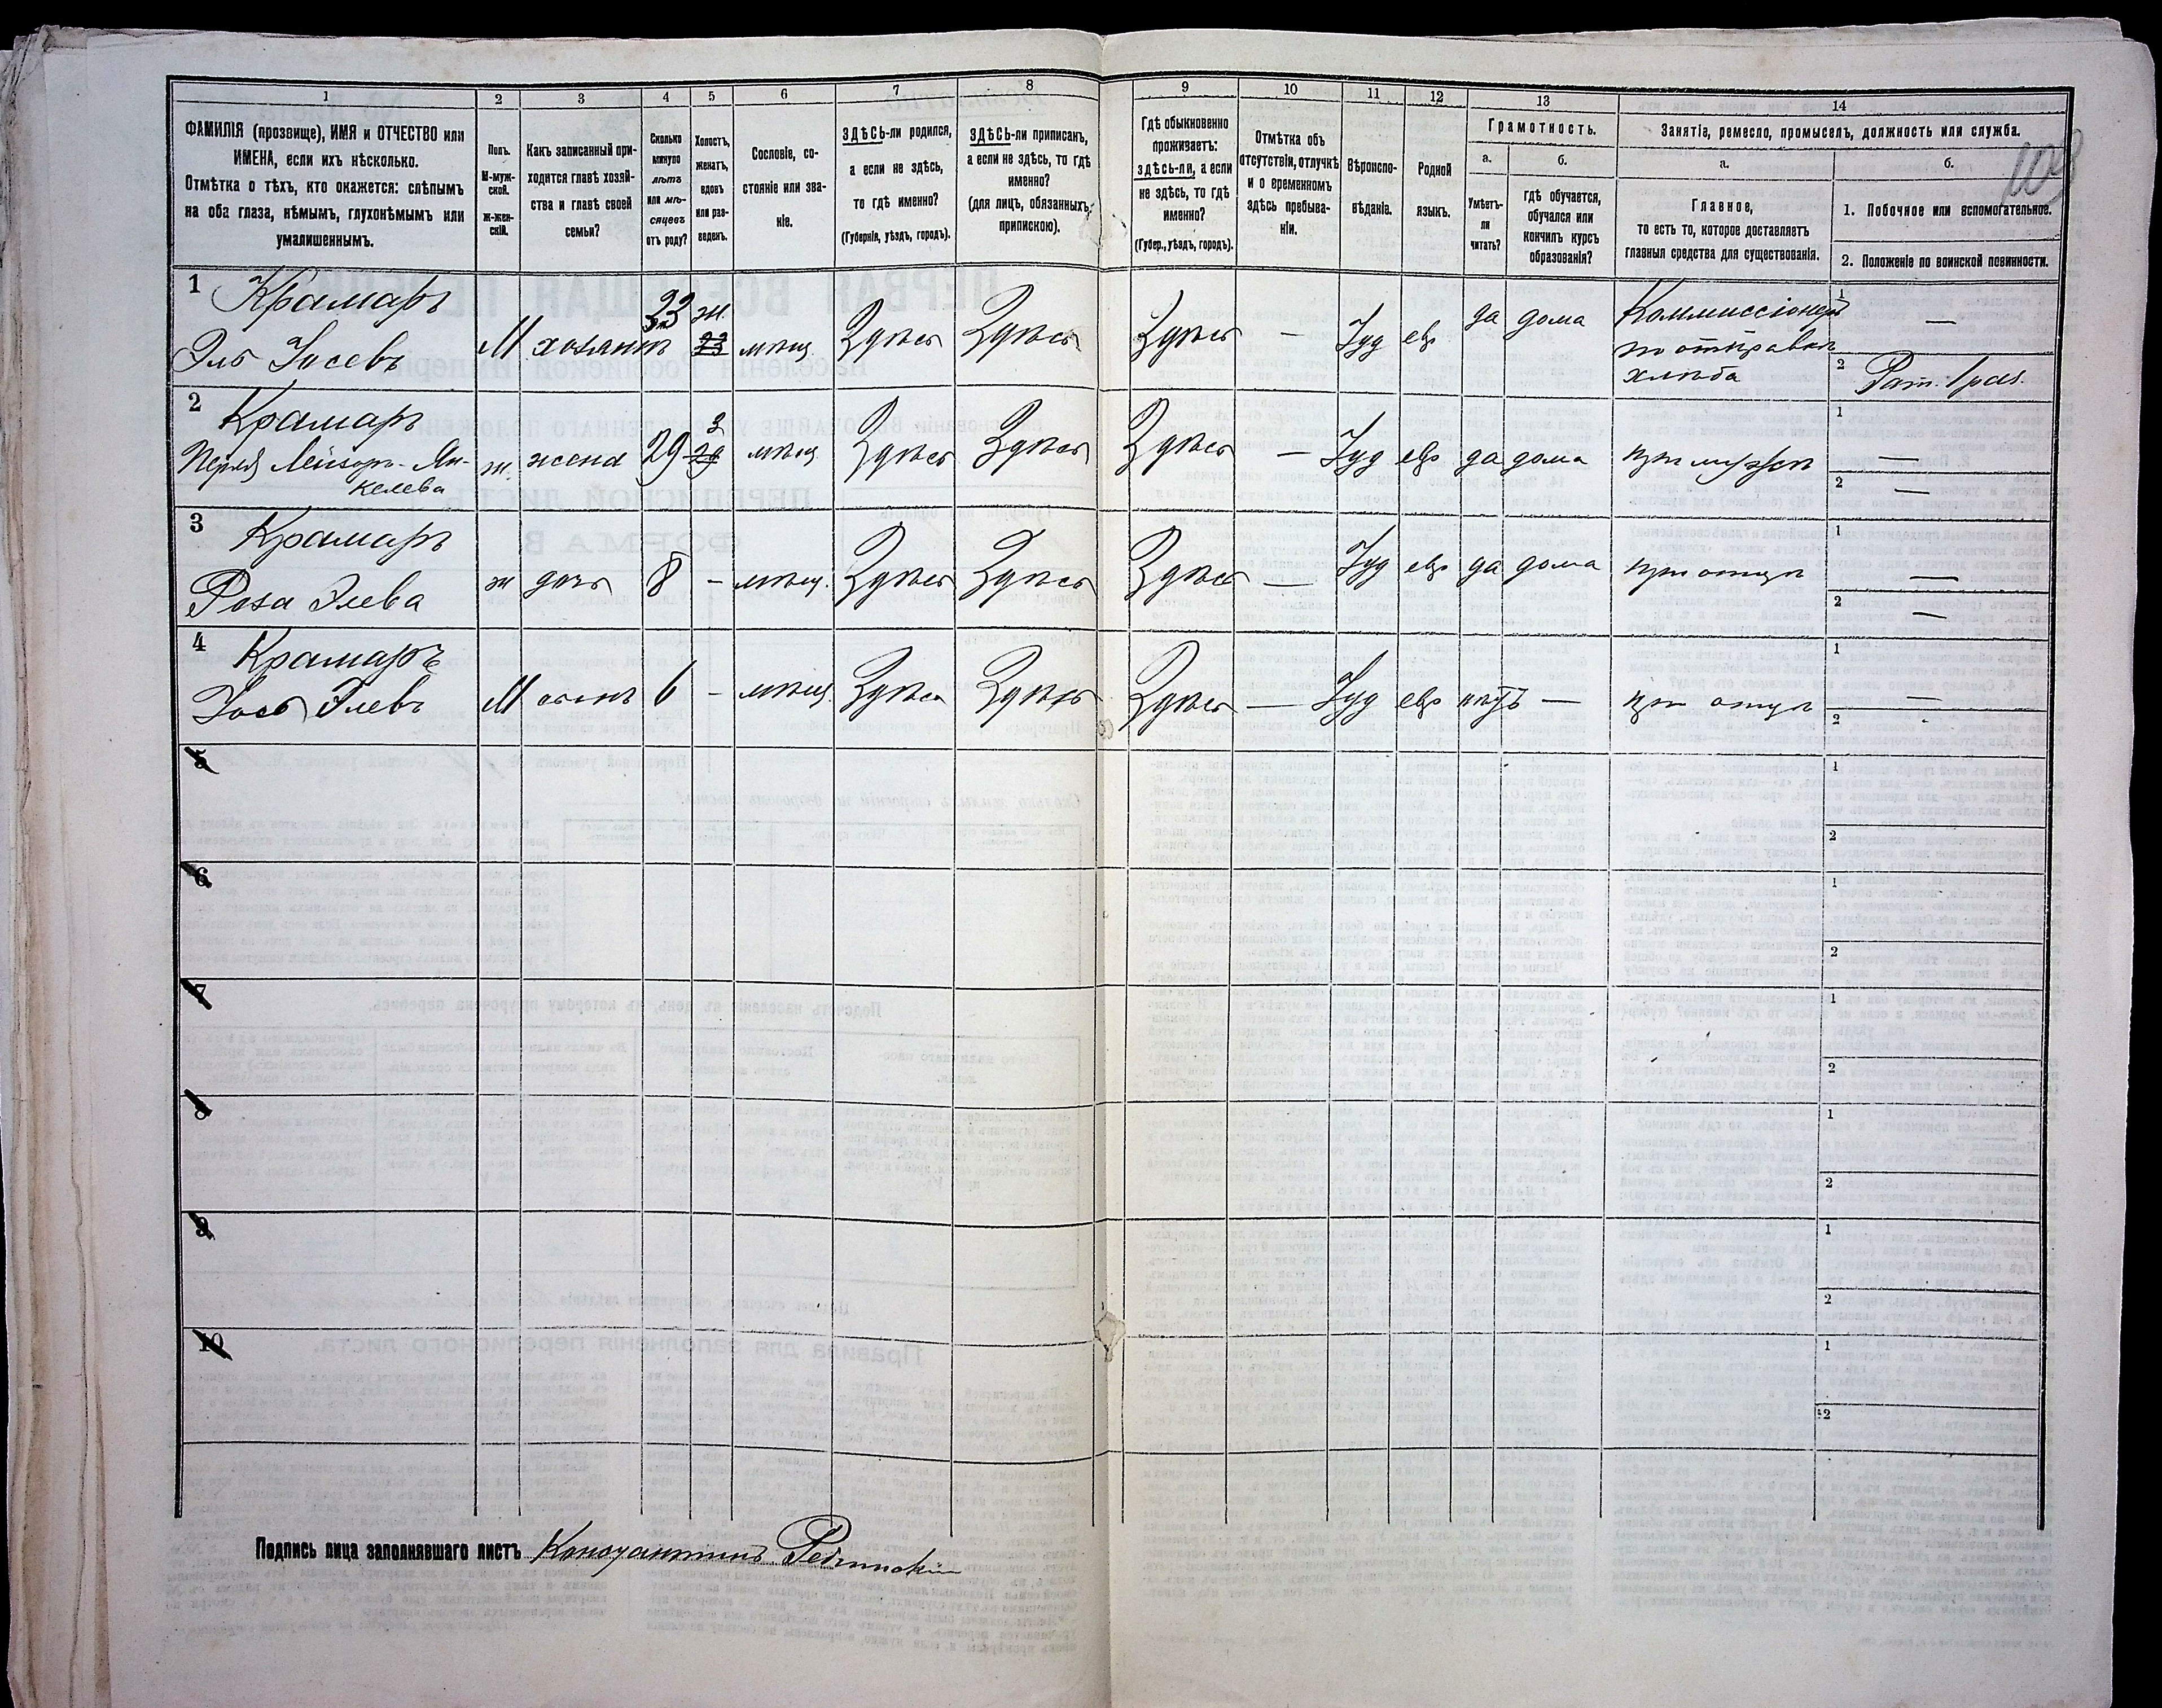 1
2
3
4
5
6
7
8
9
10
11
12
13
14
ФАМИЛІЯ (прозвище), ИМЯ и ОТЧЕСТВО или
ИМЕНА, если ихъ нѣсколько.
Отмѣтка о тѣхъ, кто окажется: слѣпымъ
на оба глаза, нѣмымъ, глухонѣмымъ или
умалишеннымъ.
Полъ.
М-муж-
ской.
ж-жен-
скій.
Какъ записанный при-
ходится главѣ хозяй-
ства и главѣ своей
семьи?
Сколько
минуло
лѣтъ
или мѣ-
сяцевъ
отъ роду?
Холостъ,
женатъ,
вдовъ
или раз-
веденъ.
Сословіе, со-
стояніе или зва-
ніе.
ЗДѢСЬ-ли родился,
а если не здѣсь,
то гдѣ именно?
(Губернія, уѣздъ, городъ).
ЗДѢСЬ-ли приписанъ,
а если не здѣсь, то гдѣ
именно?
(для лицъ, обязанныхъ
припискою).
Гдѣ обыкновенно
проживаетъ:
здѣсь-ли, а если
не здѣсь, то гдѣ
именно?
(Губер., уѣздъ, городъ).
Отмѣтка объ
отсутствіи, отлучкѣ
и о временномъ
здѣсь пребыва-
ніи.
Вѣроиспо-
вѣданіе.
Родной
языкъ.
Грамотность.
а.
Умѣетъ-
ли
читать?
б.
гдѣ обучается,
обучался или
кончилъ курсъ
образованія?
Занятіе, ремесло, промыселъ, должность или служба.
а.
Главное,
то есть то, которое доставляетъ
главныя средства для существованія.
б.
1. Побочное или вспомогательное.
2. Положеніе по воинской повинности.
1 Крамаръ
Эль Іосевъ
М хозяинъ 33 ж. мѣщ. Здѣсь Здѣсь Здѣсь — Іуд евр да дома
Коммиссіонеръ
по отправкѣ
хлѣба
1 —
2 Рат. 1 раз.
2 Крамаръ
Перля Лейзоръ-Ян-
келева
ж. жена 29 з мѣщ. Здѣсь Здѣсь Здѣсь — Іуд евр да дома при мужѣ
1 —
2 —
3 Крамаръ
Роза Элева
ж дочь 8 - мѣщ. Здѣсь Здѣсь Здѣсь — Іуд евр да дома при отцѣ
1 —
2 —
4 Крамаръ
Іось Элевъ
М сынъ 6 - мѣщ. Здѣсь Здѣсь Здѣсь — Іуд евр нѣтъ — при отцѣ
1 —
2
5
1
2
6
1
2
7
1
2
8
1
2
9
1
2
10
1
2
Подпись лица заполнявшаго листъ Константинъ